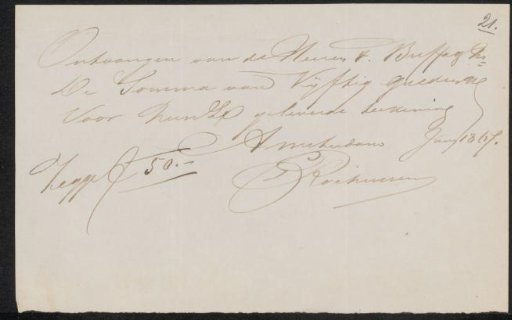 21.
Ontvangen van de Heeren F. Buffa & Zn
De Somma van Vijftig guldens
Voor hun geleverde tekening
Amsterdam Jany 1867.
Zegge ƒ 50.-
Rochussen